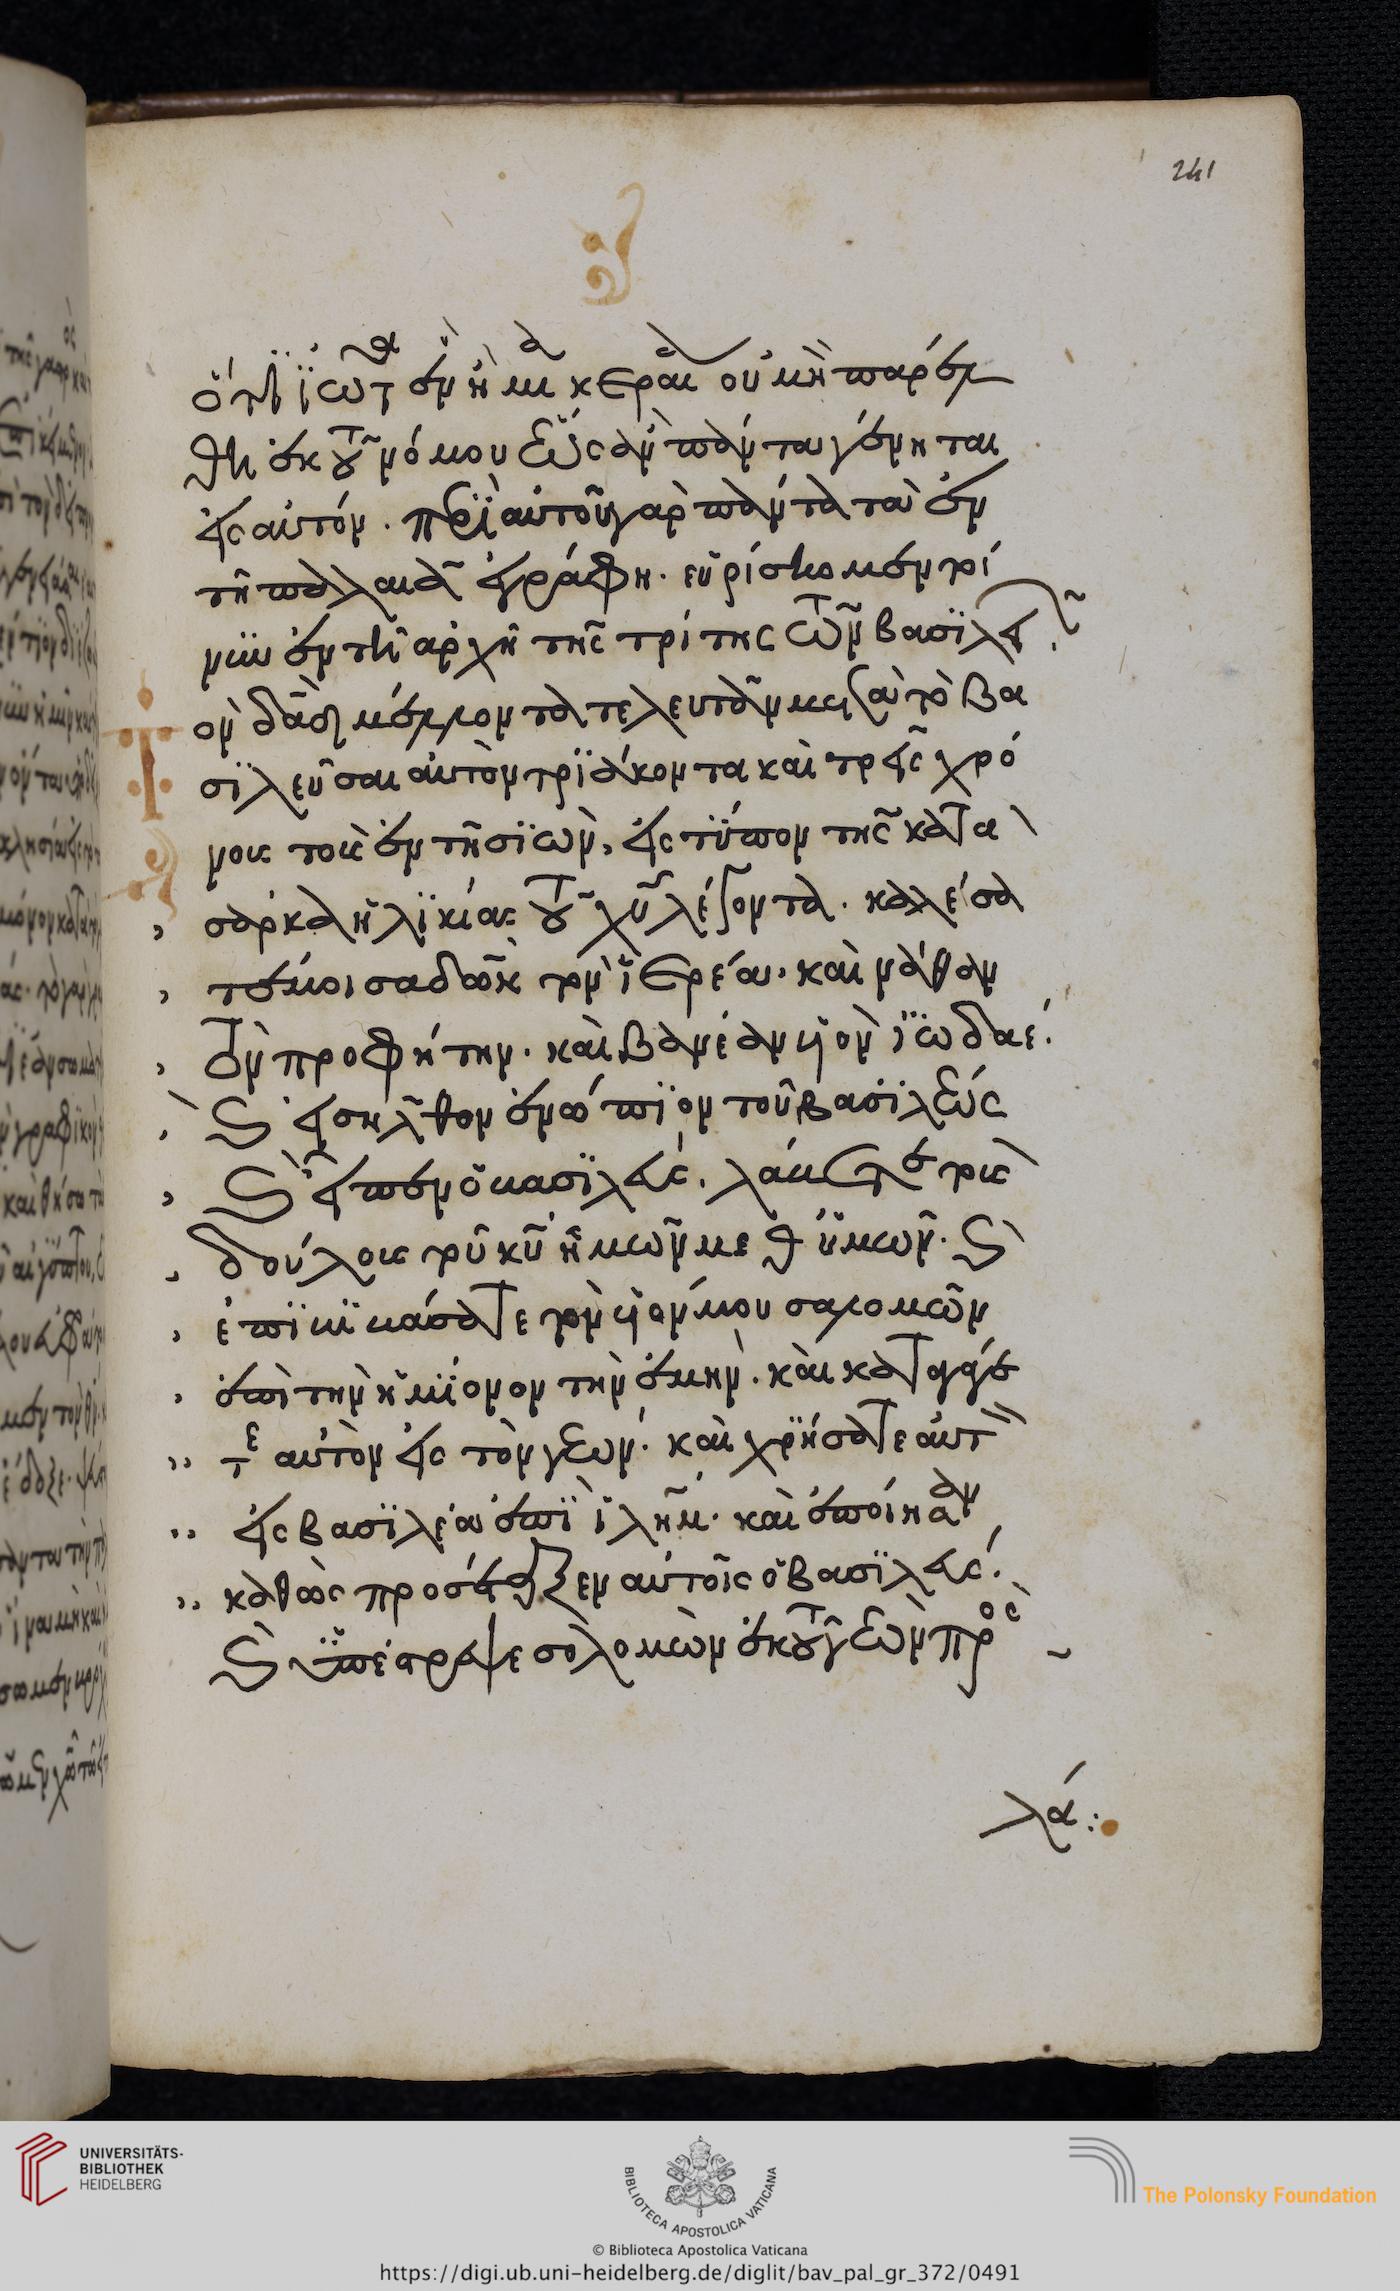 241
ὅτι ἰῶτα ἓν ἢ μία κεραία οὐ μὴ παρέλ
θη ἐκ τοῦ νόμου ἕως ἂν πάντα γένηται
εἰς αὐτόν. περὶ αὐτοῦ γὰρ πάντα τὰ ἐν
τῆ παλαιᾶ ἐγράφη. εὑρίσκομεν τοί
νυν ἐν τῆ ἀρχῆ τῆς τρίτης τῶν βασιλει
ῶν δαδ μέλλοντα τελευτᾶν μετὰ τὸ βα
σιλεῦσαι αὐτὸν τριάκοντα καὶ τρεῖς χρό
νους τοὺς ἐν τῆ σιὼν, εἰς τύπον τῆς κατὰ
σάρκα ἡλικίας τοῦ χυ λέγοντα. καλέσα
τέ μοι σαδὼκ τὸν ἱερέα. καὶ νάθαν
τὸν προφήτην. καὶ βανέαν υἱὸν ἰωδαέ.
καὶ εἰσῆλθον ἐνώπιον τοῦ βασιλέως
καὶ εἶπεν ὁ βασιλεύς. λάβετε τοὺς
δούλους τοῦ κυ ἡμῶν μεθ ὑμῶν. καὶ
ἐπιβιβάσατε τὸν υἱόν μου σαλομῶν
ἐπὶ τὴν ἡμίονον τὴν ἐμήν. καὶ καταγάγε
τε αὐτὸν εἰς τὸν γεών. καὶ χρήσατε αὐτὸν
εἰς βασιλέα ἐπὶ ιλημ. καὶ ἐποίησαν
καθὼς προσέταξεν αὐτοῖς ὁ βασιλεύς.
καὶ ὑπέστρεψε σολομὼν ἐκ τοῦ γεὼν πρὸς
λά:
UNIVERSITÄTS-
BIBLIOTHEK
HEIDELBERG
BIBLIOTECA APOSTOLICA VATICANA
The Polonsky Foundation
© Biblioteca Apostolica Vaticana
https://digi.ub.uni-heidelberg.de/diglit/bav_pal_gr_372/0491